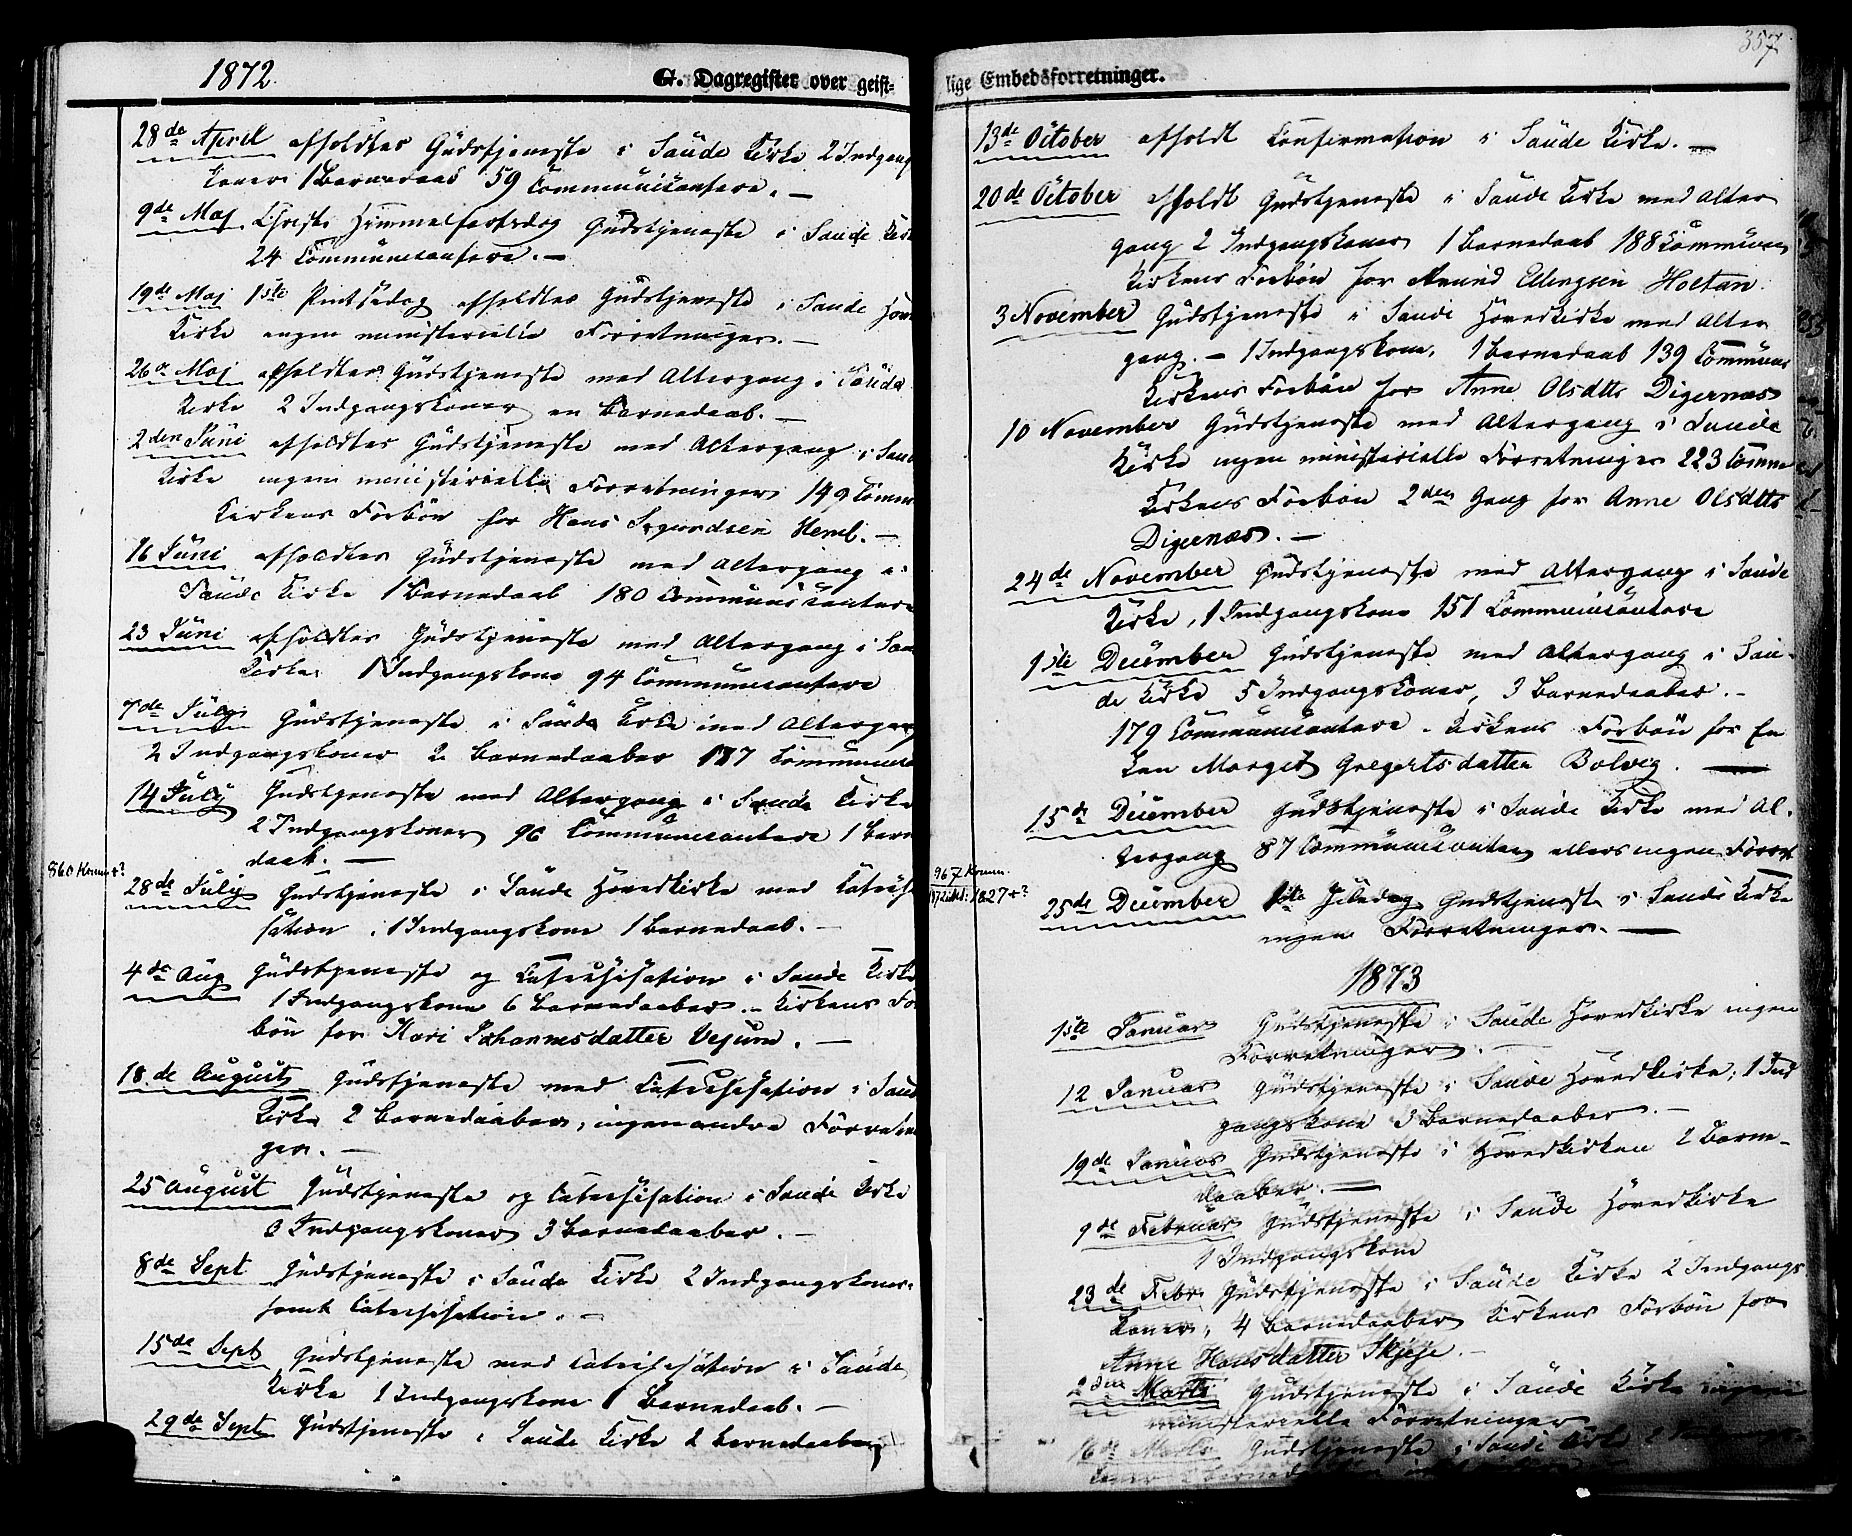 1872
G. Dagregister over geist-
28de April afholdtes Gudstjeneste i Saude Kirke 2 Indgangs
koner 1 Barnedaab 59 Communicantere. —
9de Maj Christi Himmelfartsdag Gudstjeneste i Saude Kirk
24 Communicantere. —
19de Maj 1ste Pintsedag afholdtes Gudstjeneste i Saude Hoved
Kirke ingen ministerielle Forretninger. —
26de Maj afholdtes Gudstjeneste med Altergang i Saude
Kirke 2 Indgangskoner en Barnedaab. —
2den Juni afholdtes Gudstjeneste med Altergang i Saud
Kirke ingen ministerielle Forretninger 149 Comm
Kirkens Forbøn for Hans Sigurdsen Heml. —
16 Juni afholdtes Gudstjeneste med Altergang i
Saude Kirke 1 Barnedaab 180 Communicantere
23 Juni afholdtes Gudstjeneste med Altergang i Sau
Kirke 1 Indgangskone 94 Communicantere
7de July Gudstjeneste i Saude Kirke med Altergang
2 Indgangskoner 2 Barnedaaber 187 Communica
14 July Gudstjeneste med Altergang i Saude Kirke
2 Indgangskoner 96 Communicantere 1 Barn
daab. —
860 Komm+?
28de July Gudstjeneste i Saude Hovedkirke med Catechi
sation, 1 Indgangskone 1 Barnedaab. —
4de Aug Gudstjeneste og Catechisation i Saude Kirke
1 Indgangskone 6 Barnedaaber. – Kirkens For
bøn for Kari Johannesdatter Vejum. —
18.de August Gudstjeneste med Catechisation i Saud
Kirke 2 Barnedaaber, ingen andre Forretnin
ger. —
25 August Gudstjeneste og Catechisation i Saude Kirke
3 Indgangskoner 3 Barnedaaber. —
8de Sept Gudstjeneste i Saude Kirke 2 Indgangskoner
samt Catechisation. —
15de Sept Gudstjeneste med Catechisation i Saude
Kirke 1 Indgangskone 1 Barnedaab. —
29de Sept Gudstjeneste i Saude Kirke 2 Barnedaaber
357
lige Embedsforretninger.
13de October afholdt Confirmation i Saude Kirke. —
20de October afholdt Gudstjeneste i Saude Kirke med Alter
gang 2 Indgangskoner 1 Barnedaab 188 Communic
Kirkens Forbøn for Amund Ellingsen Holtan.
3 November Gudstjeneste i Saude Hovedkirke med Alter
gang. – 1 Indgangskone, 1 Barnedaab 139 Commun
Kirkens Forbøn for Anne Olsdtr Digernæs
10 November Gudstjeneste med Altergang i Saude
Kirke ingen ministerielle Forretninger 223 Comm
Kirkens Forbøn 2den Gang for Anne Olsdtr
Digernæs. —
24de November Gudstjeneste med Altergang i Saude
Kirke, 1 Indgangskone 151 Communicantere
1ste December Gudstjeneste med Altergang i Sau-
de Kirke 5 Indgangskoner, 3 Barnedaaber. –
179 Communicantere – Kirkens Forbøn for En
ken Marget Gregertsdatter Bolvig. —
15de December Gudstjeneste i Saude Kirke med Al-
tergang 87 Communicanter ellers ingen Forret
967 Komm.
1827+?
25de December 1ste Juledag Gudstjeneste i Saude Kirke
ingen Forretninger. —
1873
1ste Januar Gudstjeneste i Saude Hovedkirke ingen
Forretninger. —
12 Januar Gudstjeneste i Saude Hovedkirke, 1 Ind
gangskone 3 Barnedaaber. —
19de Januar Gudstjeneste i Hovedkirken 2 Barne-
daaber. —
9de Februar Gudstjeneste i Saude Hovedkirke
1 Indgangskone
23de Febr. Gudstjeneste i Saude Kirke 2 Indgangs
koner, 4 Barnedaaber Kirkens Forbøn for
Anne Hansdatter Skjeje. —
2den Marts Gudstjeneste i Saude Kirke ingen
ministerielle Forretninger
16de Marts Gudstjeneste i Saude Kirke 2
koner 2 Barnedaaber